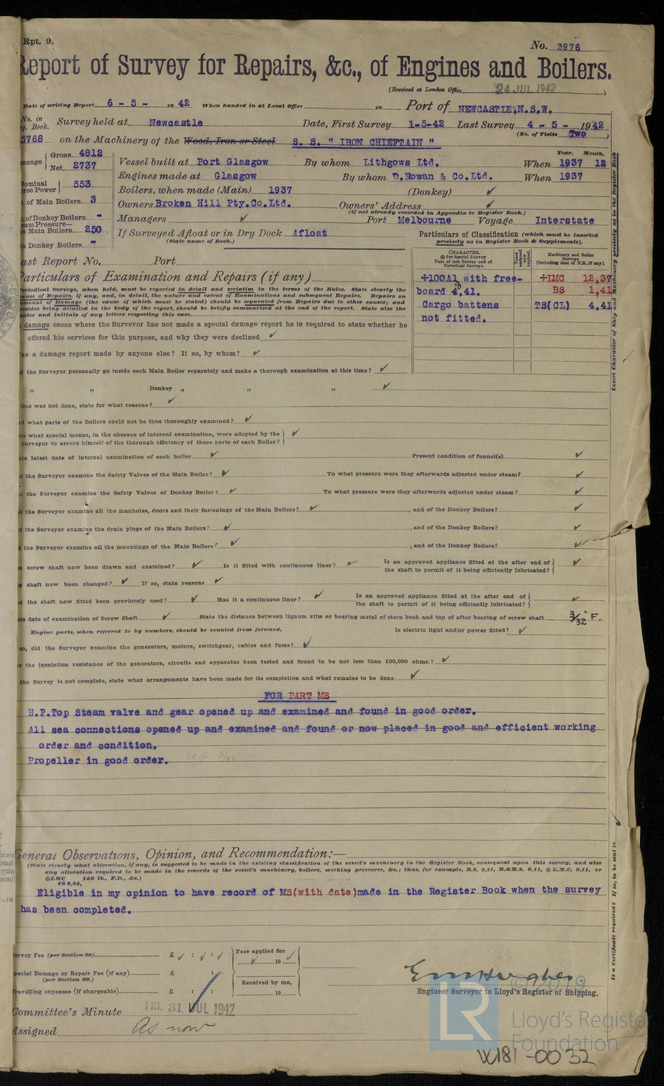 Rpt. 9.
No. 3976
Report of Survey for Repairs, &c., of Engines and Boilers.
(Received at London Office 24 JUL 1942
Date of writing Report 6 - 5 - 1942 When handed in at Local Office 19 Port of NEWCASTLE, N.S.W.
No. in Reg. Book. Survey held at Newcastle Date, First Survey 1-5-42 Last Survey 4 - 5 - 1942
(No. of Visits Two)
3768 on the Machinery of the Wood, Iron or Steel S. S. " IRON CHIEFTAIN "
Gross 4812
Net 2737
Vessel built at Port Glasgow By whom Lithgows Ltd. When 1937 12
Year. Month.
Nominal Horse Power 553
Engines made at Glasgow By whom D. Rowan & Co. Ltd. When 1937
No. of Main Boilers. 3
Boilers, when made (Main) 1937 (Donkey) ✓
No. of Donkey Boilers -
Owners Broken Hill Pty. Co. Ltd. Owners' Address ✓
(if not already recorded in Appendix to Register Book.)
Steam Pressure—
Main Boilers 250
Managers ✓ Port Melbourne Voyage Interstate
Donkey Boilers -
If Surveyed Afloat or in Dry Dock Afloat
(State name of Dock.)
Particulars of Classification (which must be inserted precisely as in Register Book & Supplements).
Last Report No. Port
CHARACTER,
for Special Survey
Date of last Survey and of Periodical Surveys.
Machinery and Boiler Surveys
(including date of N.B., if any).
÷100A1 with free-
board 4,41.
Cargo battens
not fitted.
÷LMC 12,37
BS 1,41
TS(CL) 4,41
Particulars of Examination and Repairs (if any)
Periodical Surveys, when held, must be reported in detail and seriatim in the terms of the Rules. State clearly the
In damage cases where the Surveyor has not made a special damage report he is required to state whether he
offered his services for this purpose, and why they were declined ✓
Was a damage report made by anyone else? If so, by whom? ✓
Did the Surveyor personally go inside each Main Boiler separately and make a thorough examination at this time? ✓
" " Donkey " " " ✓
If this was not done, state for what reasons? ✓
And what parts of the Boilers could not be thus thoroughly examined? ✓
Also what special means, in the absence of internal examination, were adopted by the
Surveyor to assure himself of the thorough efficiency of those parts of each Boiler? ✓
State latest date of internal examination of each boiler ✓ Present condition of funnel(s) ✓
Did the Surveyor examine the Safety Valves of the Main Boiler? ✓ To what pressure were they afterwards adjusted under steam? ✓
Did the Surveyor examine the Safety Valves of Donkey Boiler? ✓ To what pressure were they afterwards adjusted under steam? ✓
Did the Surveyor examine all the manholes, doors and their fastenings of the Main Boilers? ✓ , and of the Donkey Boilers? ✓
Did the Surveyor examine the drain plugs of the Main Boilers? ✓ , and of the Donkey Boilers? ✓
Did the Surveyor examine all the mountings of the Main Boilers? ✓ , and of the Donkey Boilers? ✓
Has screw shaft now been drawn and examined? ✓ Is it fitted with continuous liner? ✓ Is an approved appliance fitted at the after end of
the shaft to permit of it being efficiently lubricated? ✓
Has shaft now been changed? ✓ If so, state reasons ✓
Has the shaft now fitted been previously used? ✓ Has it a continuous liner? ✓ Is an approved appliance fitted at the after end of
the shaft to permit of it being efficiently lubricated? ✓
State date of examination of Screw Shaft ✓ State the distance between lignum vitæ or bearing metal of stern bush and top of after bearing of screw shaft 3/32" F.
Engine parts, when referred to by numbers, should be counted from forward. Is electric light and/or power fitted? ✓
If so, did the Surveyor examine the generators, motors, switchgear, cables and fuses? ✓
Has the insulation resistance of the generators, circuits and apparatus been tested and found to be not less than 100,000 ohms? ✓
If the Survey is not complete, state what arrangements have been made for its completion and what remains to be done ✓
FOR PART MS
H.P.Top Steam valve and gear opened up and examined and found in good order.
All sea connections opened up and examined and found or now placed in good and efficient working
order and condition.
Propeller in good order.
General Observations, Opinion, and Recommendation:—
(State clearly what alteration, if any, is suggested to be made in the existing classification of the vessel's machinery in the Register Book, consequent upon this survey, and also
any alteration required to be made in the records of the vessel's machinery, boilers, working pressures, &c.; thus, for example, B.S. 9,11, B.&M.S. 9,11, L.M.C. 9,11, or
LMC 140 lb., F.D., &c.)
CS 9,24,
Eligible in my opinion to have record of MS(with date)made in the Register Book when the survey
has been completed.
Survey Fee (per Section 29) £ ✓ : ✓ : ✓
Fees applied for
✓ 19 ✓
Special Damage or Repair Fee (if any) £ :
(per Section 29.)
Received by me,
19
Travelling expenses (if chargeable) £ :
Engineer Surveyor to Lloyd's Register of Shipping.
Committee's Minute FRI. 31 JUL 1942
Assigned As now
© 2019
LR
Lloyd's Register
Foundation
W181-0032